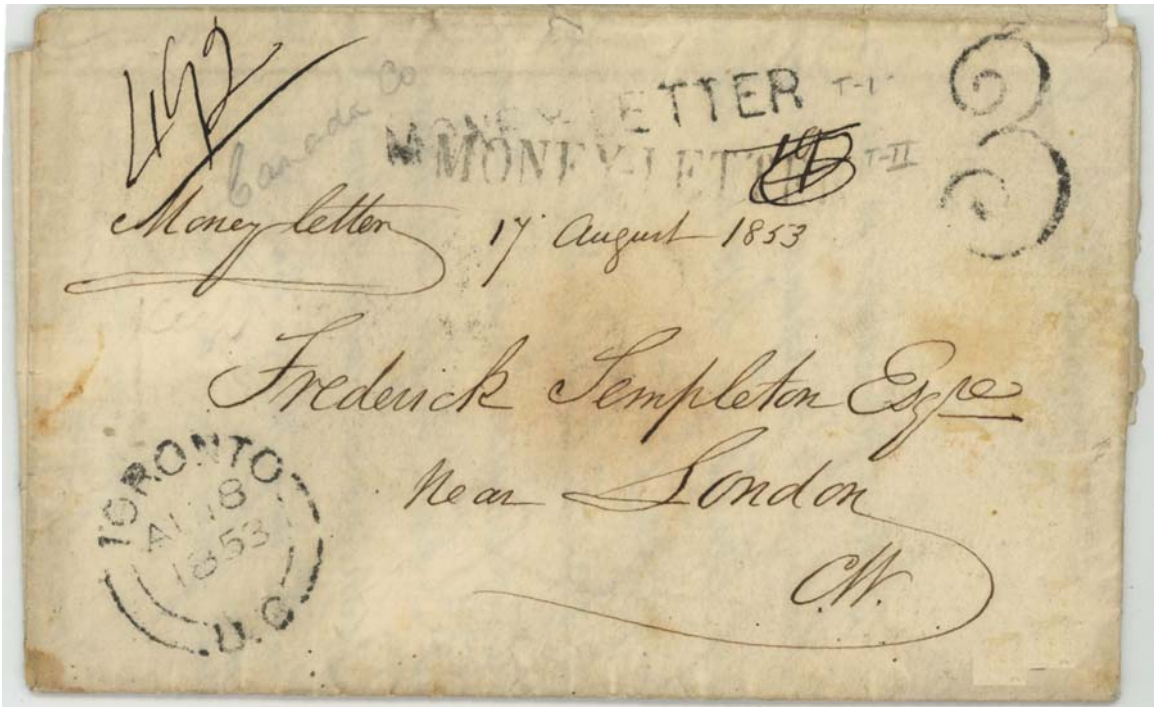 492
Canada Co
MONEY-LETTER T-I
MONEY-LETTER T-II
3
Money letter 17 August 1853
Frederick Templeton Esqre
near London
C.W.
TORONTO
AU 18
1853
U.C.